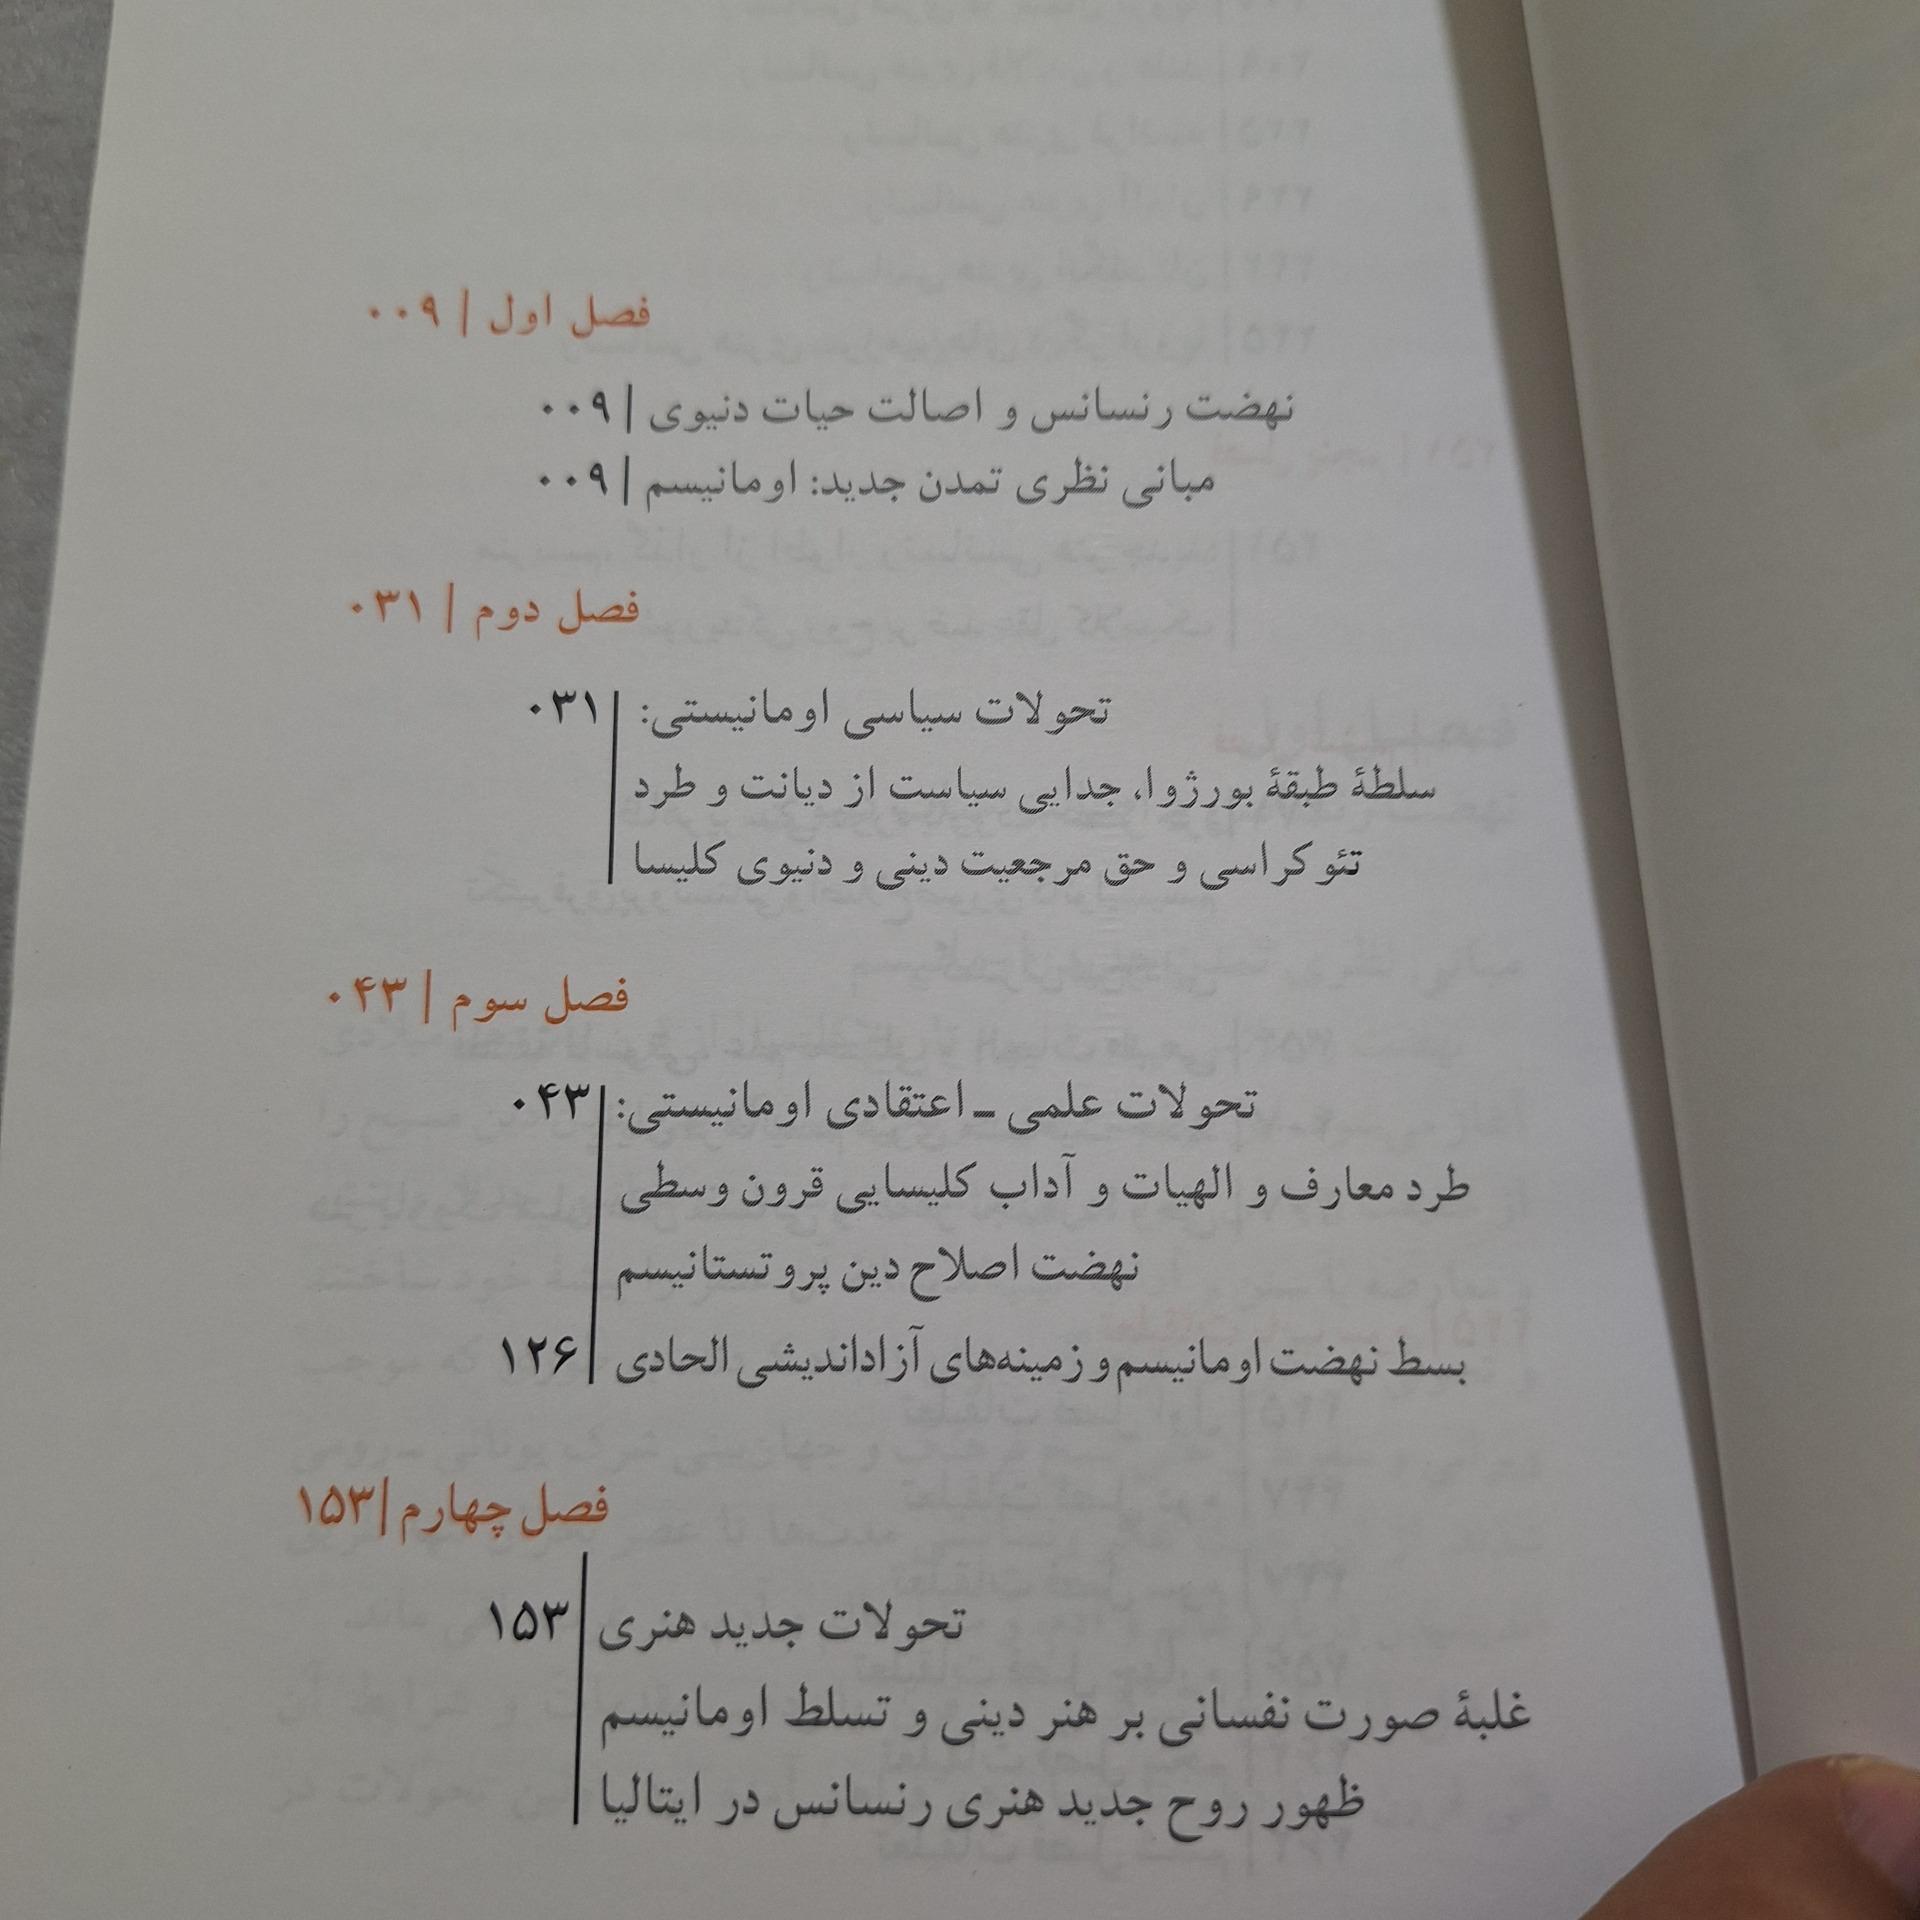 فصل اول | ۰۰۹
نهضت رنسانس و اصالت حیات دنیوی | ۰۰۹
مبانی نظری تمدن جدید: اومانیسم | ۰۰۹
فصل دوم | ۰۳۱
تحولات سیاسی اومانیستی: | ۰۳۱
سلطهٔ طبقهٔ بورژوا، جدایی سیاست از دیانت و طرد
تئوکراسی و حق مرجعیت دینی و دنیوی کلیسا
فصل سوم | ۰۴۳
تحولات علمی ـ اعتقادی اومانیستی: | ۰۴۳
طرد معارف و الهیات و آداب کلیسایی قرون وسطی
نهضت اصلاح دین پروتستانیسم
بسط نهضت اومانیسم و زمینه‌های آزاداندیشی الحادی | ۱۲۶
فصل چهارم | ۱۵۳
تحولات جدید هنری | ۱۵۳
غلبهٔ صورت نفسانی بر هنر دینی و تسلط اومانیسم
ظهور روح جدید هنری رنسانس در ایتالیا